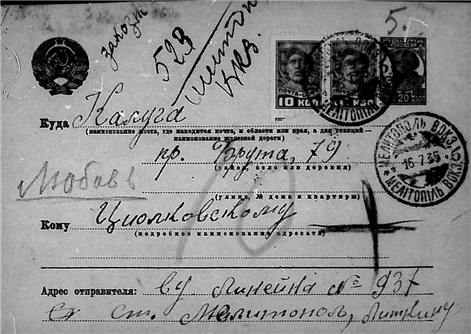 заказн
523
5.
ПОЧТА СССР
10 КОП
КОП
20 КОП
Куда Калуга
(наименование места, где находится почта, и области или края, а для станций —
наименование железной дороги)
пр. Брута, 79
(район, село или деревня)
МЕЛИТОПОЛЬ ВОКЗ.
16.7.35
МЕЛІТОПІЛЬ ВОКЗ.
Любовь
(улица, № дома и квартиры)
Кому Циолковскому
(подробное наименование адресата)
Адрес отправителя: ул Линейна № 93
ст. Мелитополь,